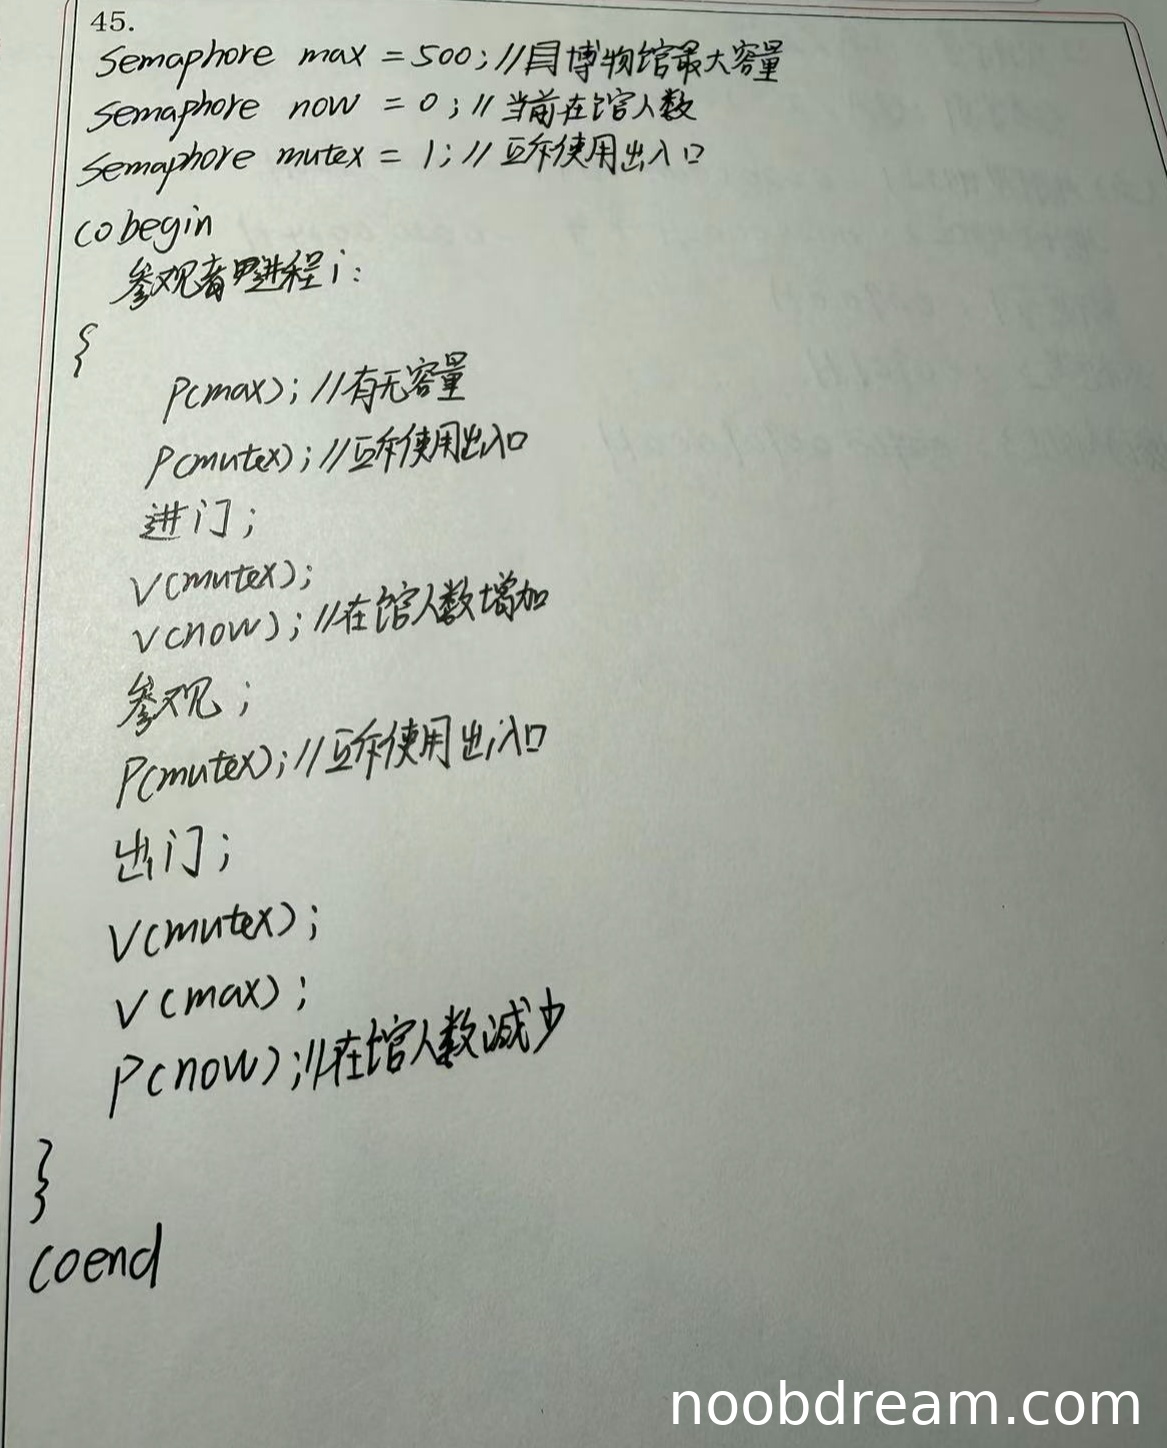 45.
Semaphore max = 500; //博物馆最大容量
Semaphore now = 0; // 当前在馆人数
Semaphore mutex = 1; // 互斥使用出入口
cobegin
参观者进程i:
{
P(max); //有无容量
P(mutex); //互斥使用出入口
进门;
V(mutex);
V(now); //在馆人数增加
参观;
P(mutex); //互斥使用出入口
出门;
V(mutex);
V(max);
P(now); //在馆人数减少
}
coend
noobdream.com